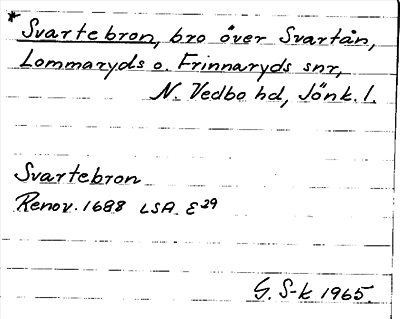 * Svartebron, bro över Svartån,
Lommaryds o. Frinnaryds snr,
N. Vedbo hd, Jönk. l.
Svartebron
Renov. 1688 LSA E²⁹
G. S-k 1965.